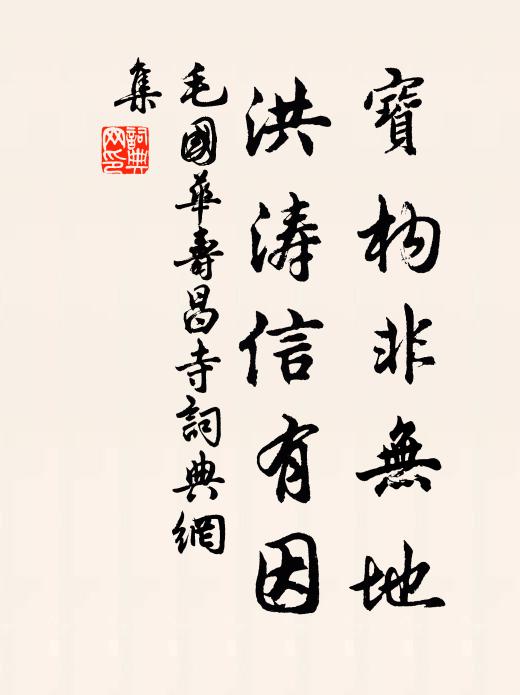 寶構非無地
洪濤信有因
毛國華壽昌寺詞典網
集
詞典
网印